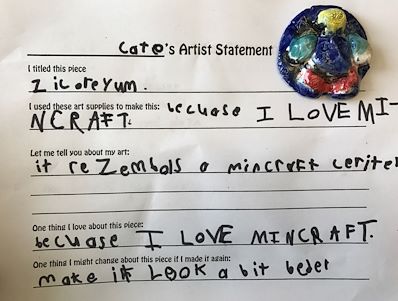 Cate's Artist Statement
I titled this piece
Ziloreyum.
I used these art supplies to make this: becuase I LOVE MI-
NCRAFT.
Let me tell you about my art:
it reZembols a mincraft
One thing I love about this piece:
becuase I LOVE MINCRAFT.
One thing I might change about this piece if I made it again:
make it LOOK a bit beder